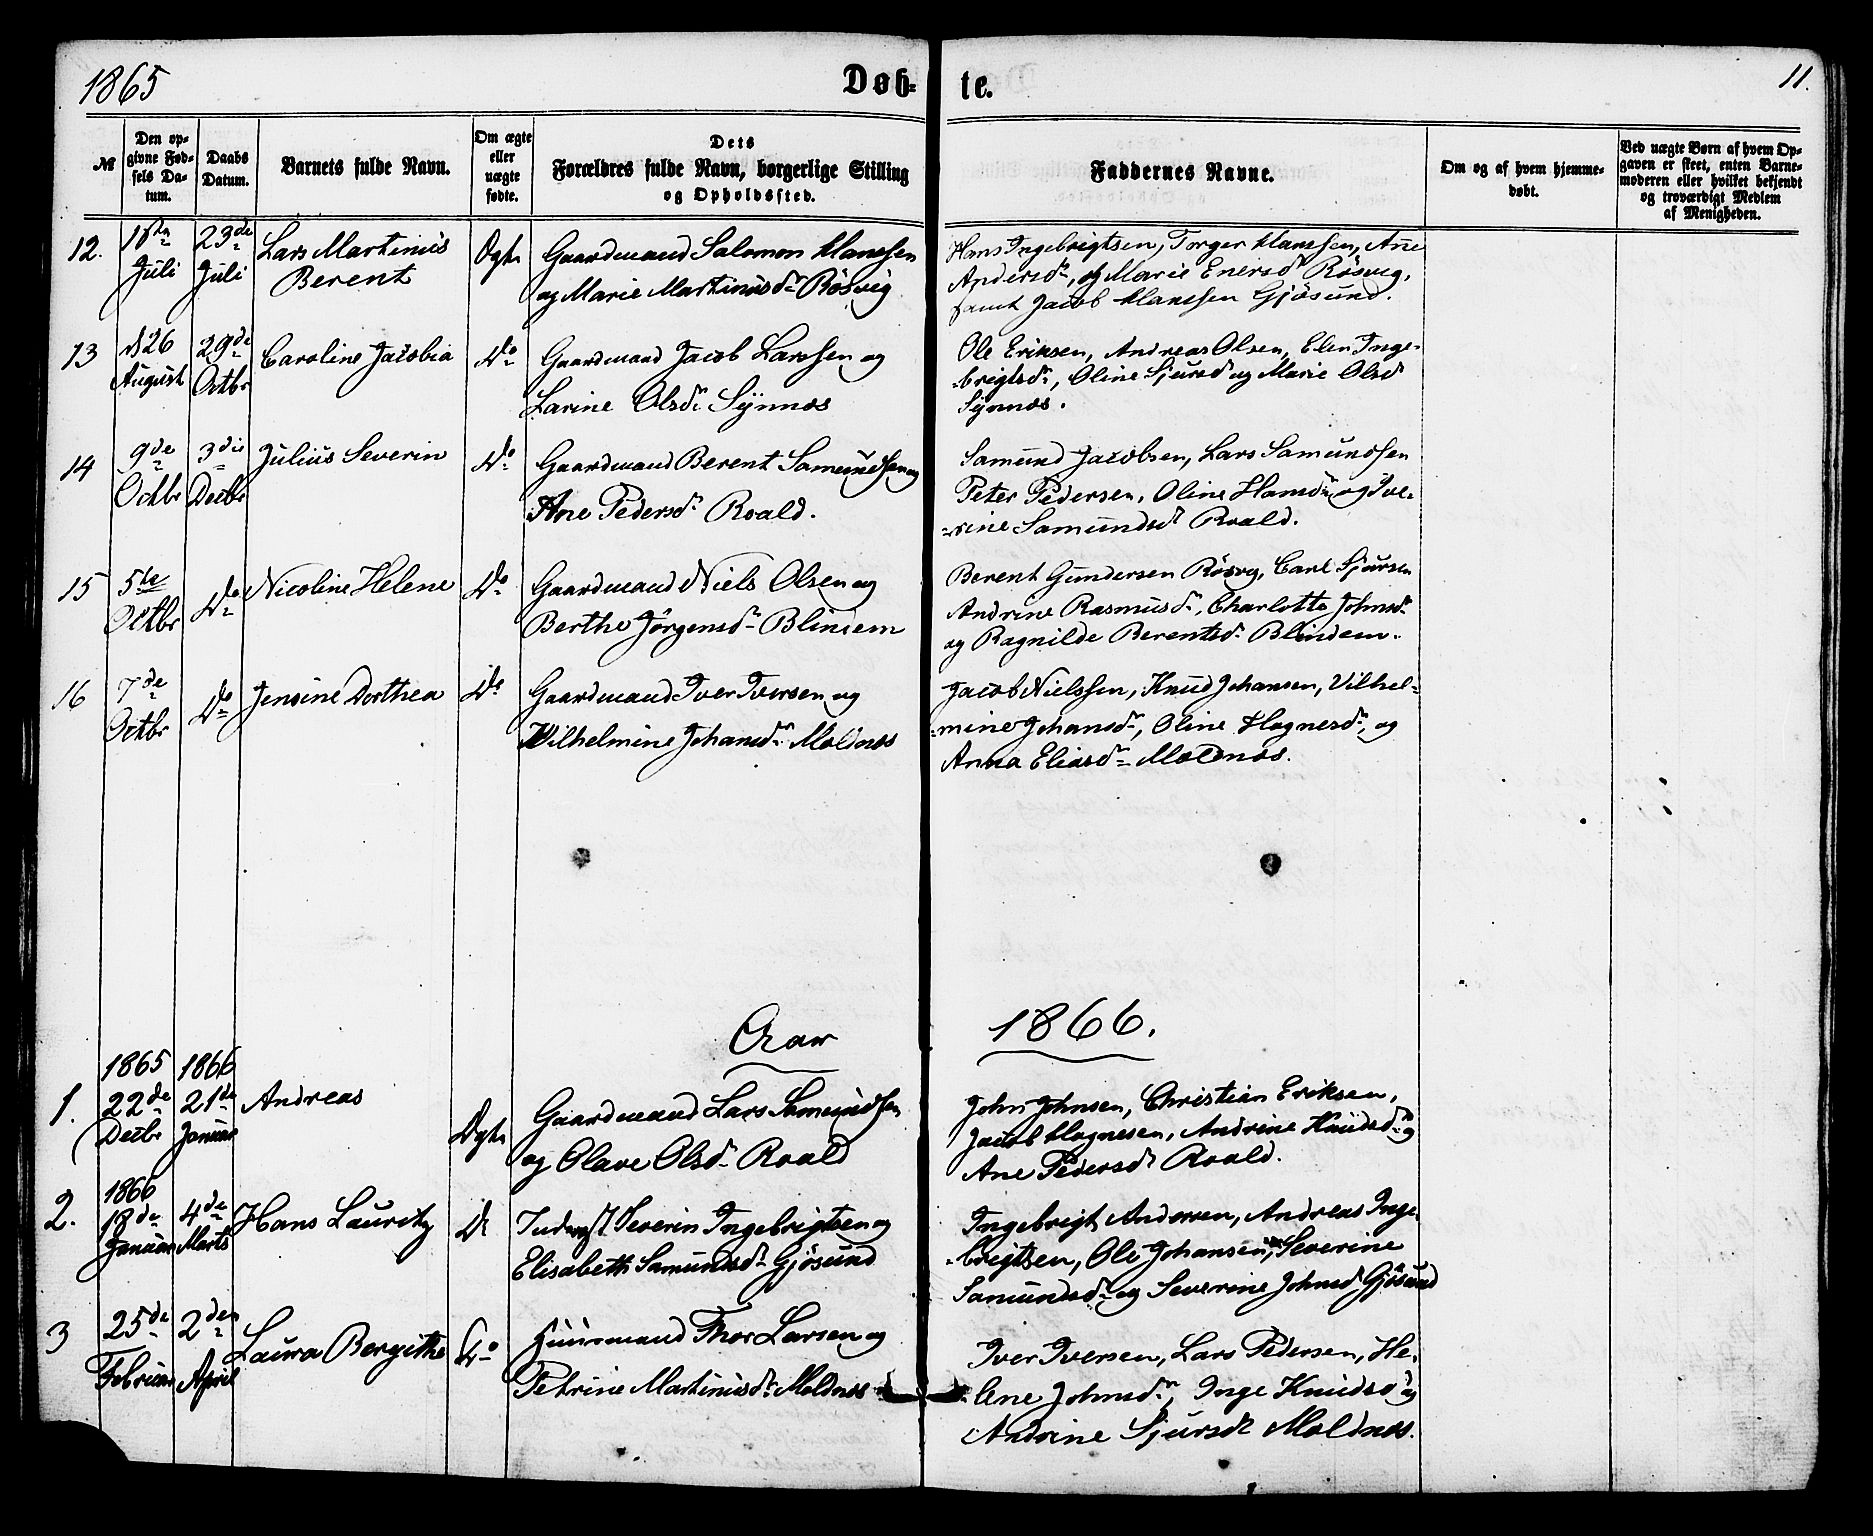 1865
Døb- te.
11.
№
Den op-
givne Fød-
sels Da-
tum.
Daabs
Datum.
Barnets fulde Navn.
Om ægte
eller
uægte
fødte.
Dets
Forældres fulde Navn, borgerlige Stilling
og Opholdssted.
Faddernes Navne.
Om og af hvem hjemme-
døbt.
Ved uægte Børn af hvem Op-
gaven er skeet, enten Barne-
moderen eller hvilket bekjendt
og troværdigt Medlem
af Menigheden.
12.
Juli
23de
Juli
Lars Martinus
Berent
Ægte
Gaardmand Salomon Hanssen
og Marie Martinusdr Rösvig
Hans Ingebrigtsen, Torger Hanssen, Ane
Andersdr, og Marie Enersdr Rösvig,
samt Jacob Hanssen Gjösund.
13
d 26
August
29de
Octbr
Caroline Jacobia
Do
Gaardmand Jacob Larssen og
Larine Olsdr Synnæs
Ole Eriksen, Andreas Olsen, Elen Inge-
brigtsdr, Oline Sjursd og Marie Olsd
Synnæs.
14
9de
Octbr
3die
Decbr
Julius Severin
Do
Gaardmand Berent Samundsen og
Ane Pedersdr Roald.
Samund Jacobsen, Lars Samundsen
Peter Pedersen, Oline Hansdr og Ive-
rine Samundsdr Roald.
15
5te
Octbr
Do
Nicoline Helene
Do
Gaardmand Niels Olsen og
Berthe Jørgensdr Blindem
Berent Gundersen Rösvg, Carl Sjursen
Andrine Rasmusdr, Charlotte Johnsdr
og Ragnilde Berentsdr Blindem.
16
7de
Octbr
Do
Jensine Dorthea
Do
Gaardmand Iver Iversen og
Wilhelmine Johansdr Moldnæs
Jacob Nielssen, Knud Johansen, Vilhel-
mine Johansdr, Oline Hagnesdr, og
Anna Eliasdr Moldnæs.
Aar 1866.
1.
1865
22de
Decbr
1866
21de
Januar
Andreas
Ægte
Gaardmand Lars Samundsen
og Olave Olsdr Roald
John Johnsen, Christian Eriksen,
Jacob Hagnesen, Andrine Knudsdr og
Ane Pedersdr Roald.
2.
1866
18de
Januar
4de
Marts
Hans Lauritz
Do
Severin Ingebrigtsen og
Elisabeth Samundsdr Gjösund
Ingebrigt Andersen, Andreas Inge-
brigtsen, Ole Johansen, Severine
Samundsdr og Severine Johnsd Gjösund
3
25de
Februar
2den
April
Laura Bergithe
Do
Huusmand Thor Larsen og
Petrine Martinusdr Moldnæs
Iver Iversen, Lars Pedersen, He-
lene Johnsdr, Inge Knudsd og
Andrine Sjursdr Moldnæs.